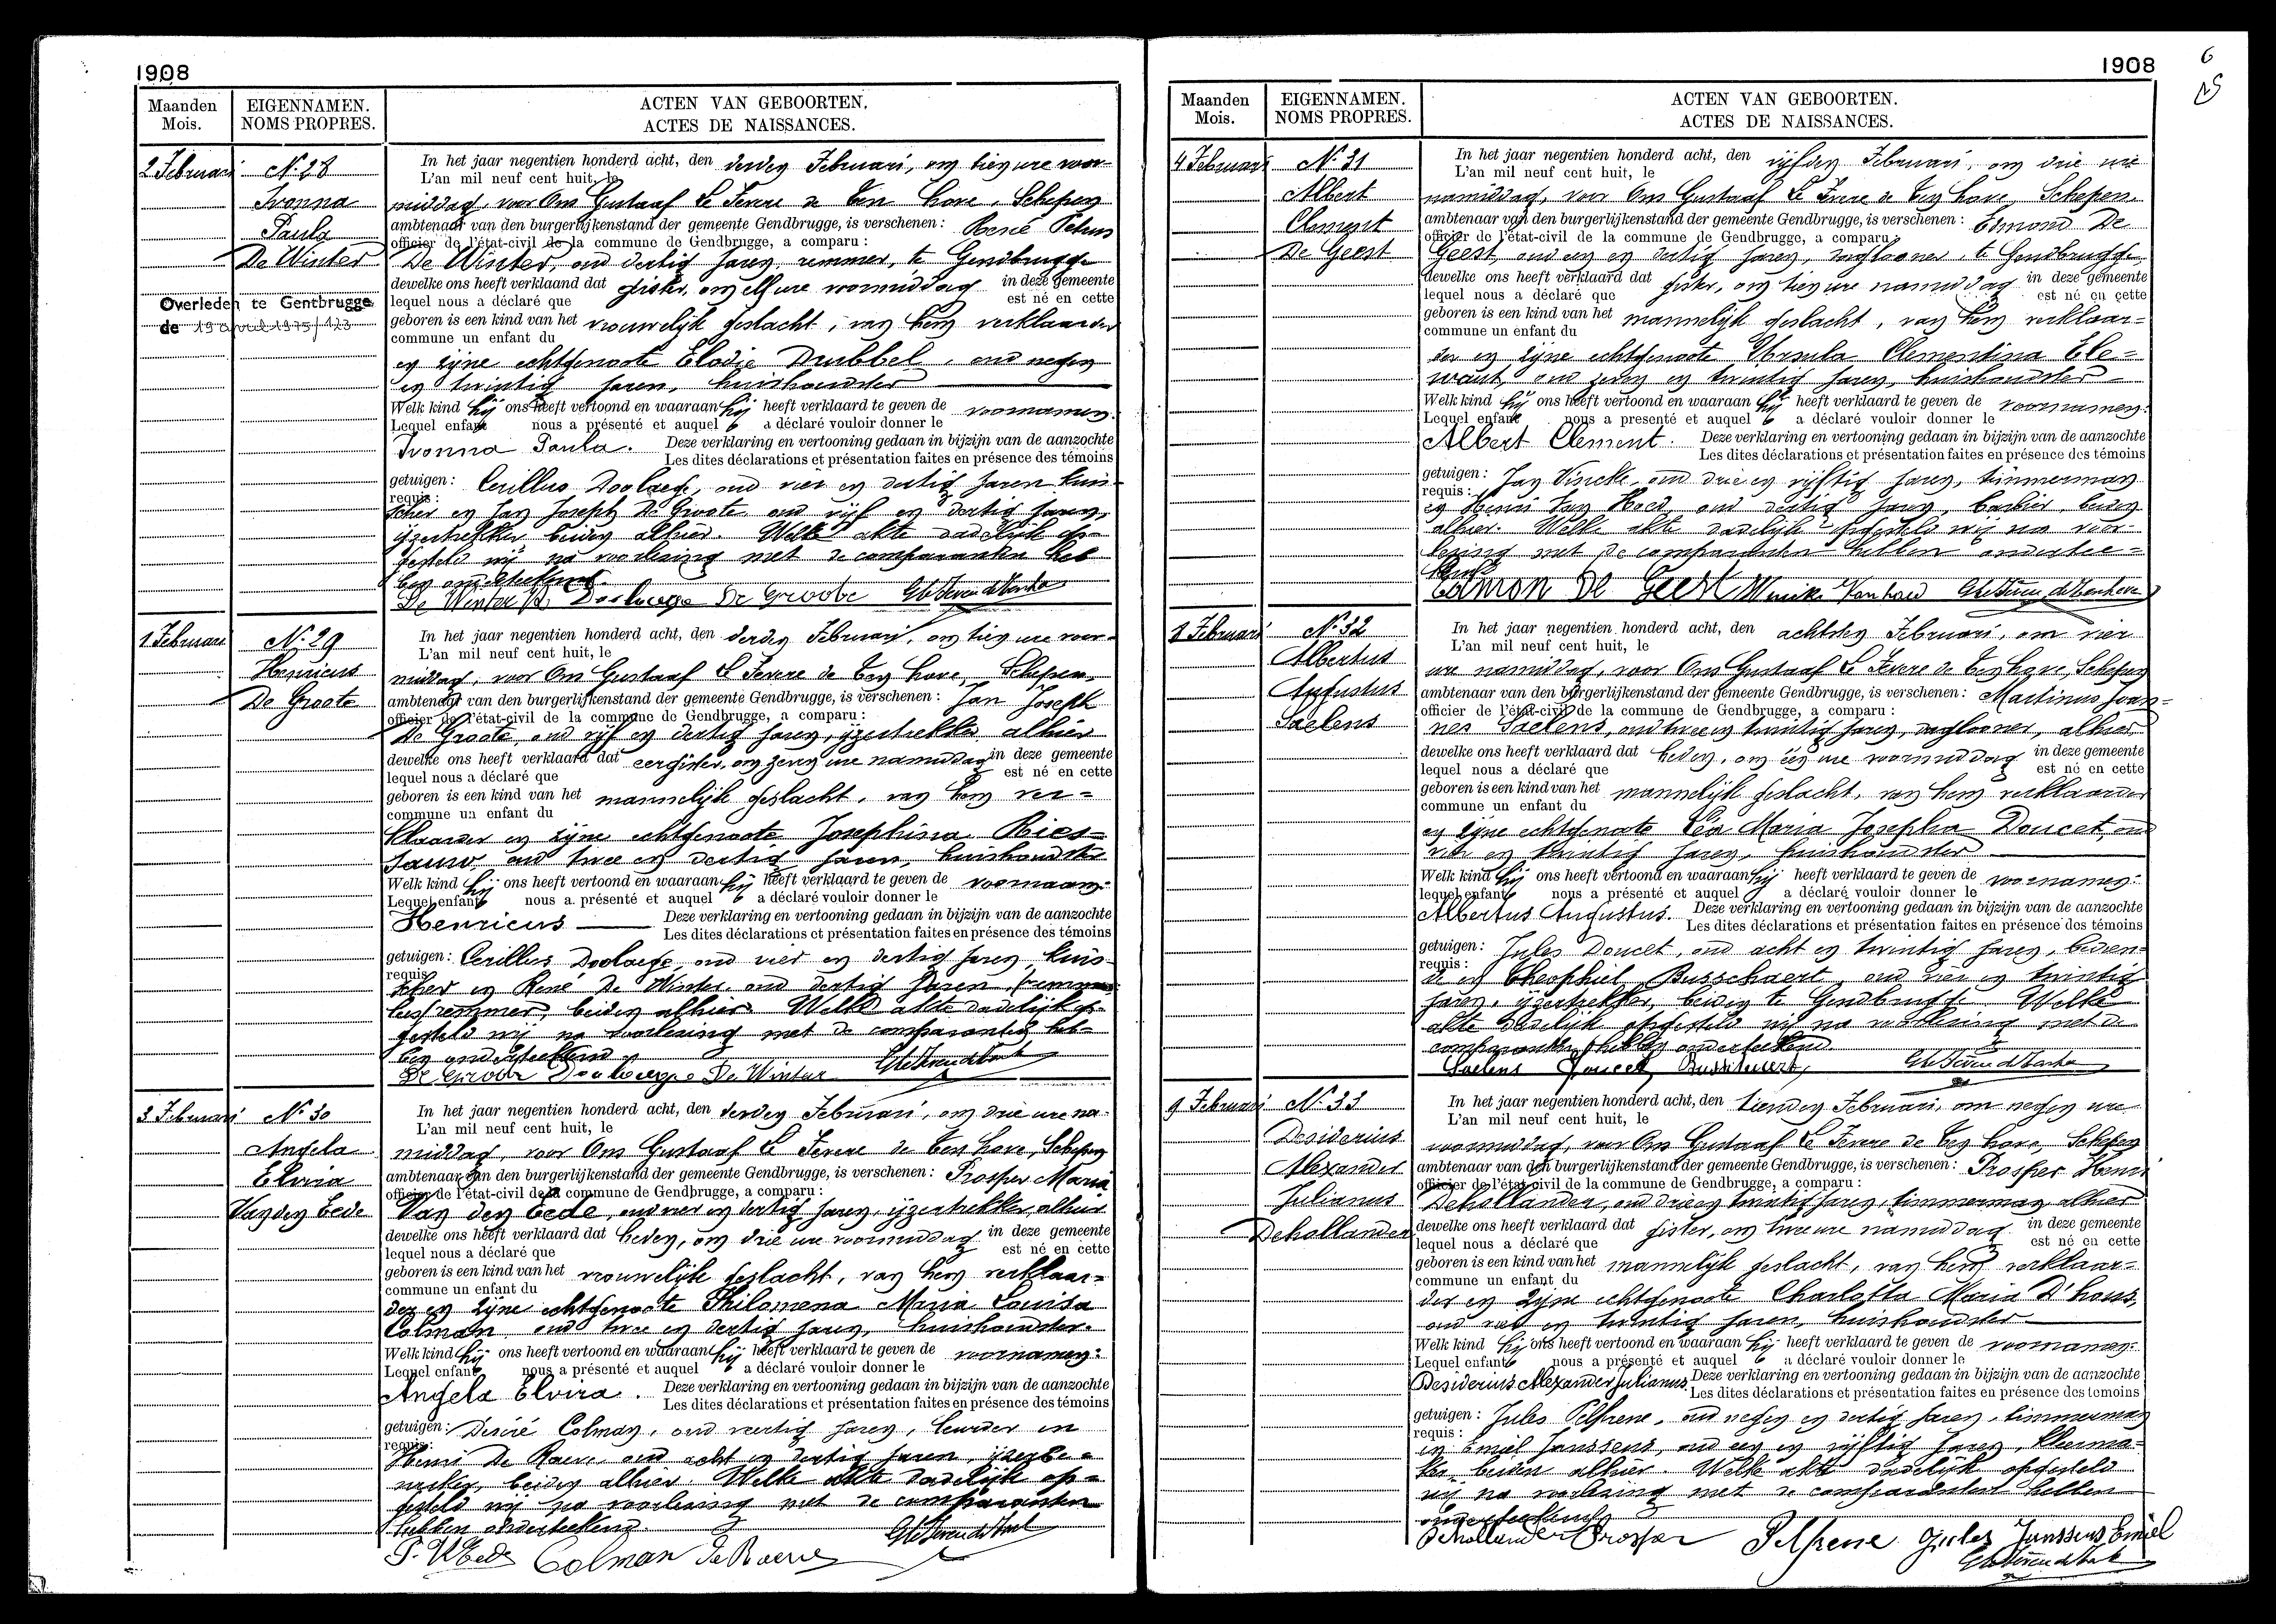 1908
Maanden
Mois.
EIGENNAMEN.
NOMS PROPRES.
ACTEN VAN GEBOORTEN.
ACTES DE NAISSANCES.
2 Februari
N. 28
Ivonna
Paula
De Winter
Overleden te Gentbrugge
de 19 april 1975/123
In het jaar negentien honderd acht, den derden Februari, om tien ure voor-
L'an mil neuf cent huit, le
middag, voor Ons Gustaaf Le Fevere de Ten Hove, Schepen
ambtenaar van den burgerlijkenstand der gemeente Gendbrugge, is verschenen: René Petrus
officier de l'état-civil de la commune de Gendbrugge, a comparu:
De Winter, oud dertig jaren, remmer, te Gendbrugge
dewelke ons heeft verklaard dat gister, om elf ure voormiddag in deze gemeente
lequel nous a déclaré que est né en cette
geboren is een kind van het vrouwelijk geslacht, van hem verklaarder
commune un enfant du
en zijne echtgenoote Elodie Drubbel, oud negen
en twintig jaren, huishoudster
Welk kind hij ons heeft vertoond en waaraan hij heeft verklaard te geven de voornamen:
Lequel enfant nous a présenté et auquel a déclaré vouloir donner le
Ivonna Paula. Deze verklaring en vertooning gedaan in bijzijn van de aanzochte
Les dites déclarations et présentation faites en présence des témoins
getuigen: Cerillus Doolaege, oud vier en dertig jaren kuis-
requis:
scher en Jan Joseph De Groote oud vijf en dertig jaren,
ijzertrekker beiden alhier. Welke akte dadelijk op-
gesteld wij na voorlezing met de comparanten heb
ben onderteekend.
De Winter R. Doolaege De Groote
1 Februari
N. 29
Henricus
De Groote
In het jaar negentien honderd acht, den derden Februari, om tien ure voor-
L'an mil neuf cent huit, le
middag, voor Ons Gustaaf Le Fevere de Ten Hove, Schepen
ambtenaar van den burgerlijkenstand der gemeente Gendbrugge, is verschenen: Jan Joseph
officier de l'état-civil de la commune de Gendbrugge, a comparu:
De Groote, oud vijf en dertig jaren, ijzertrekker alhier
dewelke ons heeft verklaard dat eergister, om zeven ure namiddag in deze gemeente
lequel nous a déclaré que est né en cette
geboren is een kind van het mannelijk geslacht, van hem ver=
commune un enfant du
klaarder en zijne echtgenoote Josephina
oud twee en dertig jaren, huishoudster
Welk kind hij ons heeft vertoond en waaraan hij heeft verklaard te geven de voornaam:
Lequel enfant nous a présenté et auquel a déclaré vouloir donner le
Henricus Deze verklaring en vertooning gedaan in bijzijn van de aanzochte
Les dites déclarations et présentation faites en présence des témoins
getuigen: Cerillus Doolaege, oud vier en dertig jaren, kuis-
requis:
scher en René De Winter oud dertig jaren,
remmer, beiden alhier. Welke akte dadelijk op-
gesteld wij na voorlezing met de comparanten heb-
ben onderteekend
De Groote Doolaege De Winter
3 Februari
N. 30
Angela
Elvira
Van den Eede
In het jaar negentien honderd acht, den derden Februari, om drie ure na-
L'an mil neuf cent huit, le
middag, voor Ons Gustaaf Le Fevere de Ten Hove, Schepen
ambtenaar van den burgerlijkenstand der gemeente Gendbrugge, is verschenen: Prosper Maria
officier de l'état-civil de la commune de Gendbrugge, a comparu:
Van den Eede, oud vier en dertig jaren, ijzertrekker, alhier
dewelke ons heeft verklaard dat heden, om drie ure voormiddag in deze gemeente
lequel nous a déclaré que est né en cette
geboren is een kind van het vrouwelijk geslacht, van hem verklaar=
commune un enfant du
der en zijne echtgenoote Philomena Maria Louisa
Colman, oud twee en dertig jaren, huishoudster.
Welk kind hij ons heeft vertoond en waaraan hij heeft verklaard te geven de voornamen:
Lequel enfant nous a présenté et auquel a déclaré vouloir donner le
Angela Elvira. Deze verklaring en vertooning gedaan in bijzijn van de aanzochte
Les dites déclarations et présentation faites en présence des témoins
getuigen: Desiré Colman, oud veertig jaren, en
requis:
Henri De Raeve oud acht en dertig jaren, ijzerbe=
werker, beiden alhier. Welke akte dadelijk op=
gesteld wij na voorlezing met de comparanten
hebben onderteekend.
P. VEede Colman De Raeve
1908
6
Maanden
Mois.
EIGENNAMEN.
NOMS PROPRES.
ACTEN VAN GEBOORTEN.
ACTES DE NAISSANCES.
4 Februari
N. 31
Albert
Clement
De Geest
In het jaar negentien honderd acht, den vijfden Februari, om drie ure
L'an mil neuf cent huit, le
namiddag, voor Ons Gustaaf Le Fevere de Ten Hove, Schepen
ambtenaar van den burgerlijkenstand der gemeente Gendbrugge, is verschenen: Edmond De
officier de l'état-civil de la commune de Gendbrugge, a comparu:
Geest, oud een en dertig jaren, dagloner, te Gendbrugge
dewelke ons heeft verklaard dat gister, om tien ure namiddag in deze gemeente
lequel nous a déclaré que est né en cette
geboren is een kind van het mannelijk geslacht, van hem verklaar=
commune un enfant du
der en zijne echtgenoote Ursula Clementina Ele=
want, oud zeven en twintig jaren, huishoudster
Welk kind hij ons heeft vertoond en waaraan hij heeft verklaard te geven de voornamen:
Lequel enfant nous a présenté et auquel a déclaré vouloir donner le
Albert Clement. Deze verklaring en vertooning gedaan in bijzijn van de aanzochte
Les dites déclarations et présentation faites en présence des témoins
getuigen: Jan Vincke, oud drie en vijftig jaren, timmerman
requis:
en Henri Van Hoed, oud dertig jaren, barbier, beiden
alhier. Welke akte dadelijk opgesteld wij na voor-
lezing met de comparanten hebben ondertee=
kend
Edmon De Geest
8 Februari
N. 32
Albertus
Augustus
Saelens
In het jaar negentien honderd acht, den achtsten Februari, om vier
L'an mil neuf cent huit, le
ure namiddag, voor Ons Gustaaf Le Fevere de Ten Hove, Schepen
ambtenaar van den burgerlijkenstand der gemeente Gendbrugge, is verschenen: Martinus Joan-
officier de l'état-civil de la commune de Gendbrugge, a comparu:
nes Saelens, oud twee en twintig jaren, dagloner, alhier
dewelke ons heeft verklaard dat heden, om één ure voormiddag in deze gemeente
lequel nous a déclaré que est né en cette
geboren is een kind van het mannelijk geslacht, van hem verklaarder
commune un enfant du
en zijne echtgenoote Léa Maria Josepha Doucet, oud
vier en twintig jaren, huishoudster
Welk kind hij ons heeft vertoond en waaraan hij heeft verklaard te geven de voornamen:
lequel enfant nous a présenté et auquel a déclaré vouloir donner le
Albertus Augustus. Deze verklaring en vertooning gedaan in bijzijn van de aanzochte
Les dites déclarations et présentation faites en présence dos témoins
getuigen: Jules Doucet, oud acht en twintig jaren, bedien-
requis:
de en Theophiel Busschaert, oud drie en twintig
jaren, ijzertrekker, beiden te Gendbrugge. Welke
akte dadelijk opgesteld wij na voorlezing met de
comparanten hebben onderteekend.
Saelens Doucet Busschaert
9 Februari
N. 33
Desiderius
Alexander
Julianus
Dehollander
In het jaar negentien honderd acht, den tienden Februari, om negen ure
L'an mil neuf cent huit, le
voormiddag, voor Ons Gustaaf Le Fevere de Ten Hove, Schepen
ambtenaar van den burgerlijkenstand der gemeente Gendbrugge, is verschenen: Prosper Henri
officier de l'état civil de la commune de Gendbrugge, a comparu:
Dehollander, oud drie en twintig jaren, timmerman, alhier
dewelke ons heeft verklaard dat gister, om twee ure namiddag in deze gemeente
lequel nous a déclaré que est né en cette
geboren is een kind van het mannelijk geslacht, van hem verklaar=
commune un enfant du
der en zijne echtgenoote Charlotta Maria D'hons,
oud vier en twintig jaren, huishoudster
Welk kind hij ons heeft vertoond en waaraan hij heeft verklaard te geven de voornamen:
Lequel enfant nous a présenté et auquel a déclaré vouloir donner le
Desiderius Alexander Julianus. Deze verklaring en vertooning gedaan in bijzijn van de aanzochte
Les dites déclarations et présentation faites en présence des temoins
getuigen: Jules Pelfrene, oud negen en dertig jaren, timmerman
requis:
en Emiel Janssens, oud een en vijftig jaren, kleerma-
ker, beiden alhier. Welke akte dadelijk opgesteld
wij na voorlezing met de comparanten hebben
onderteekend
Dehollander Prosper Pelfrene Jules Janssens Emiel